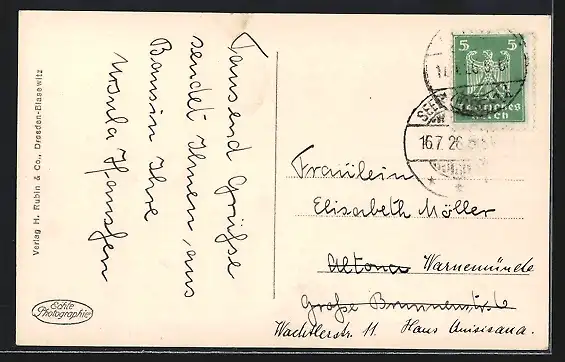 Verlag H. Rubin & Co., Dresden-Blasewitz
Echte
Photographie
Tausend Grüße
sendet Ihnen aus
Bansin Ihre
Ursula Hanssen
5 5
Deutsches
Reich
SEE
16.7.26
Fräulein
Elisabeth Möller
Altona Warnemünde
Große Brunnenstr.
Wachtlerstr. 11. Haus